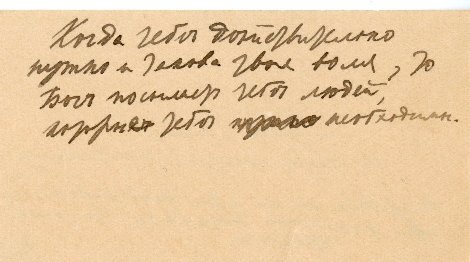 Когда тебе действительно
нужно и такова твоя воля, то
Богъ посылает тебе людей,
которые тебе необходимы.